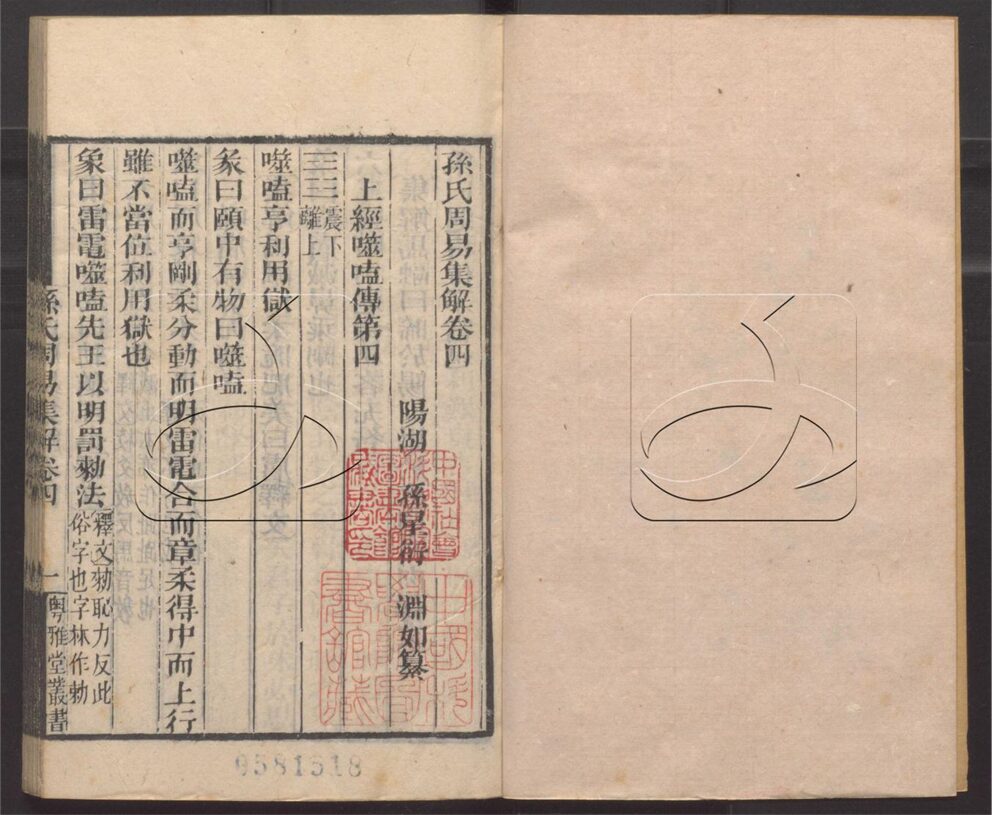 孫氏周易集解卷四
陽湖 孫星衍 淵如纂
上經噬嗑傳第四
震下
離上
噬嗑亨利用獄
彖曰頤中有物曰噬嗑
噬嗑而亨剛柔分動而明雷電合而章柔得中而上行
雖不當位利用獄也
象曰雷電噬嗑先王以明罰勑法
釋文勑恥力反此
俗字也字林作勅
孫氏周易集解卷四 一 粵雅堂叢書
0581518